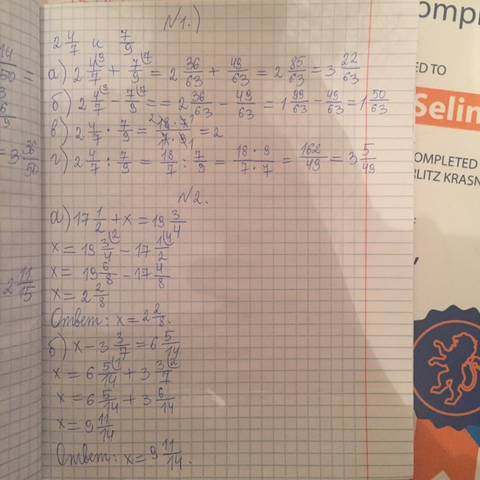 14
50 =
3
6
9
= 3 36/50
2 11/15
N1.)
2 4/7 и 7/9
а) 2 4/7 + 7/9 = 2 36/63 + 49/63 = 2 85/63 = 3 22/63
б) 2 4/7 - 7/9 = = 2 36/63 - 49/63 = 1 99/63 - 49/63 = 1 50/63
в) 2 4/7 · 7/9 = 18 · 7 / 7 · 9 = 2
г) 2 4/7 : 7/9 = 18/7 : 7/9 = 18 · 9 / 7 · 7 = 162/49 = 3 5/49
N2.
а) 17 1/2 + x = 19 3/4
x = 19 3/4 - 17 1/2
x = 19 6/8 - 17 4/8
x = 2 2/8
Ответ: x = 2 2/8.
б) x - 3 3/7 = 6 5/14
x = 6 5/14 + 3 3/7
x = 6 5/14 + 3 6/14
x = 9 11/14
Ответ: x = 9 11/14.
ompl
ED TO
Selin
OMPLETED
RLITZ KRASN